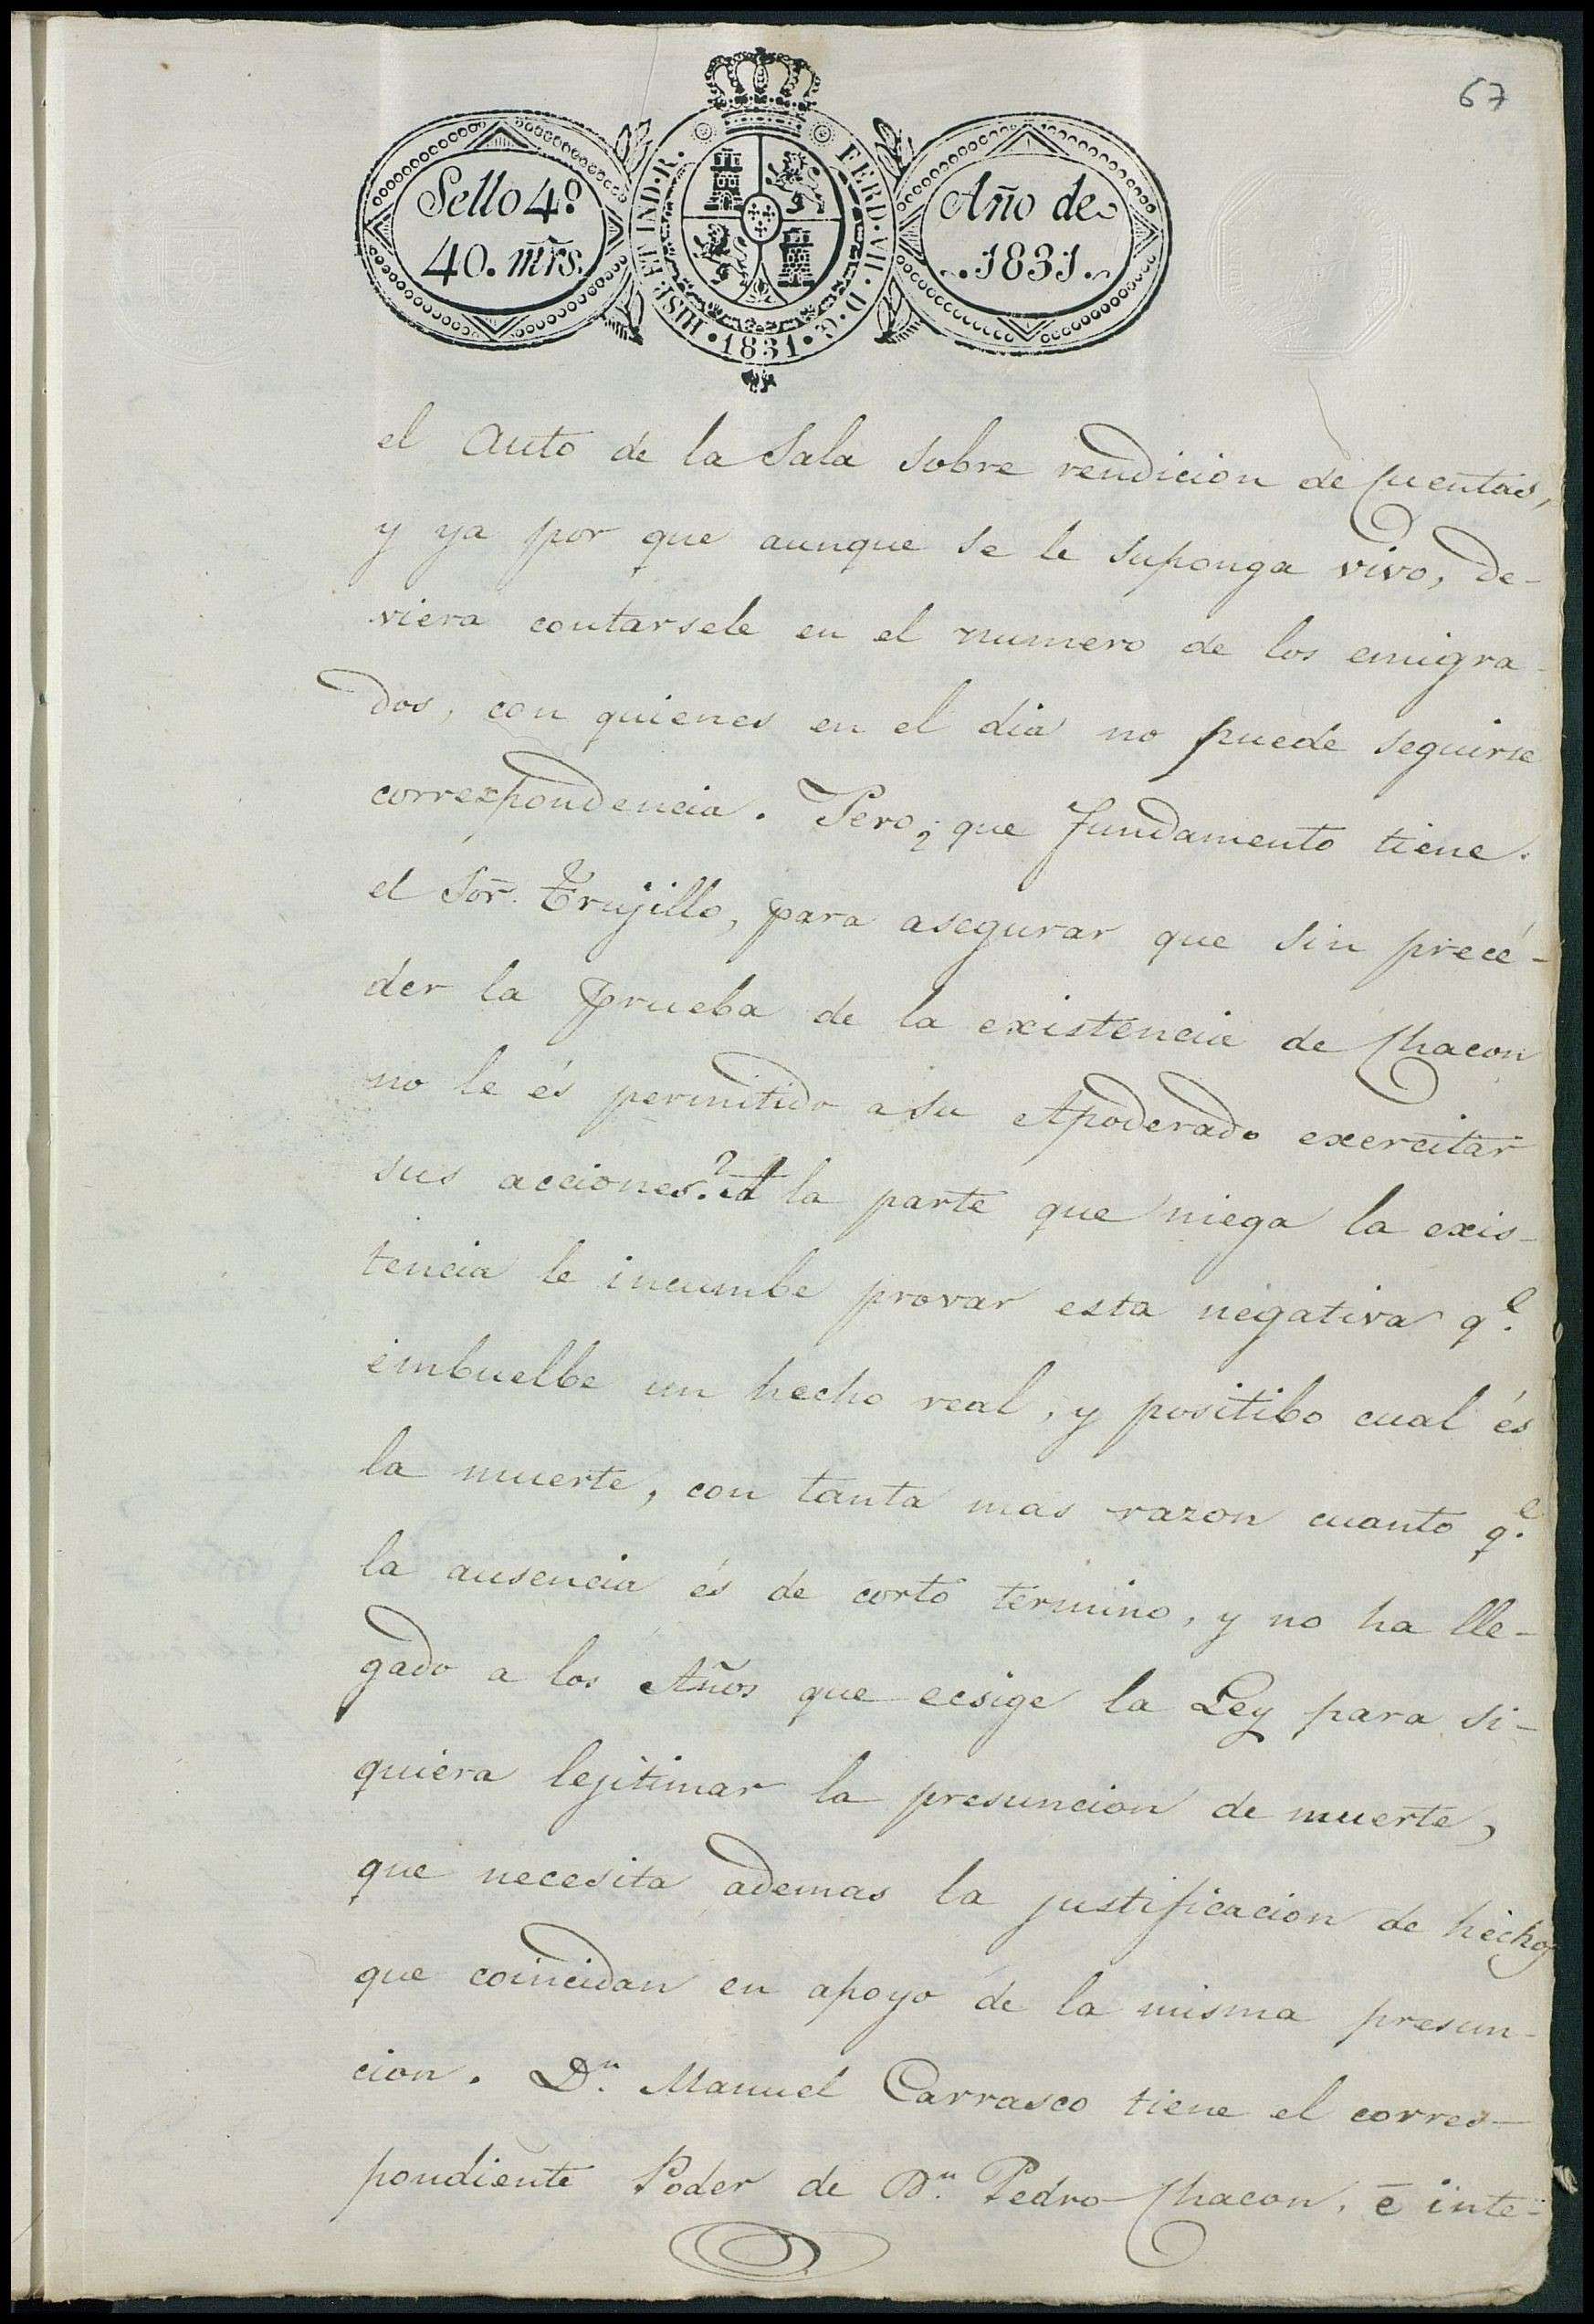 67
Sello 4º
40. mr̃s.
HISP. ET IND. R. FERD. VII. D. G. 1831
Año de
1831.
el Auto de la Sala sobre rendicion de Cuentas,
y ya por que aunque se le suponga vivo, de-
viera contarsele en el numero de los emigra-
dos, con quienes en el dia no puede seguirse
correspondencia. Pero ¿que fundamento tiene
el Sor̃. Trujillo, para asegurar que sin precé-
der la prueba de la existencia de Chacon
no le és permitido a su Apoderado exercitar
sus acciones? A la parte que niega la exis-
tencia le incumbe provar esta negativa q.e
embuelbe un hecho real, y positibo cual és
la muerte, con tanta mas razon cuanto q.e
la ausencia és de corto termino, y no ha lle-
gado a los Años que ecsige la Ley para si-
quiera lejitimar la presuncion de muerte,
que necesita ademas la justificacion de hechos
que coincidan en apoyo de la misma presun-
cion. D.n Manuel Carrasco tiene el corres-
pondiente Poder de D.n Pedro Chacon, é inte-